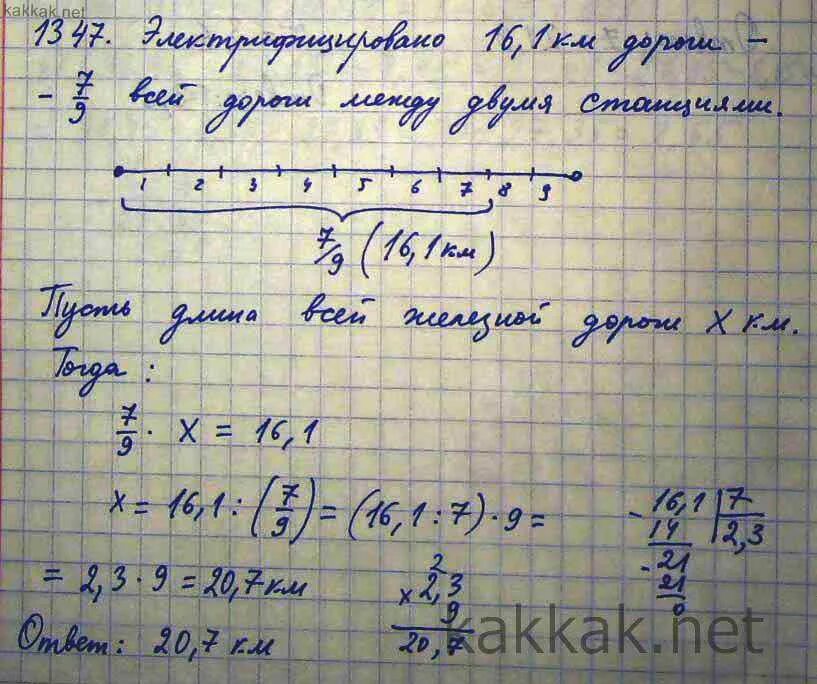 kakkak.net
1347. Электрифицировано 16,1 км дороги –
– 7/9 всей дороги между двумя станциями.
1 2 3 4 5 6 7 8 9
7/9 (16,1 км)
Пусть длина всей железной дороги X км.
Тогда:
7/9 · X = 16,1
X = 16,1 : (7/9) = (16,1 : 7) · 9 =
= 2,3 · 9 = 20,7 км
Ответ: 20,7 км
2
× 2,3
9
20,7
- 16,1 | 7
14 | 2,3
- 21
21
0
kakkak.net